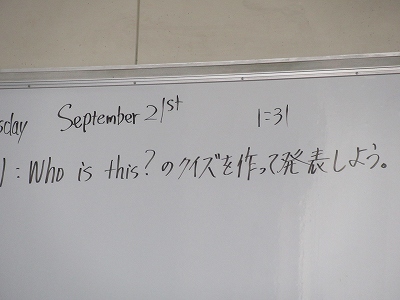 sday September 21st 1:31
1 : Who is this? のクイズを作って発表しよう。